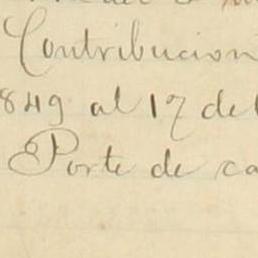 Contribucion
1849 al 17 del
Porte de ca